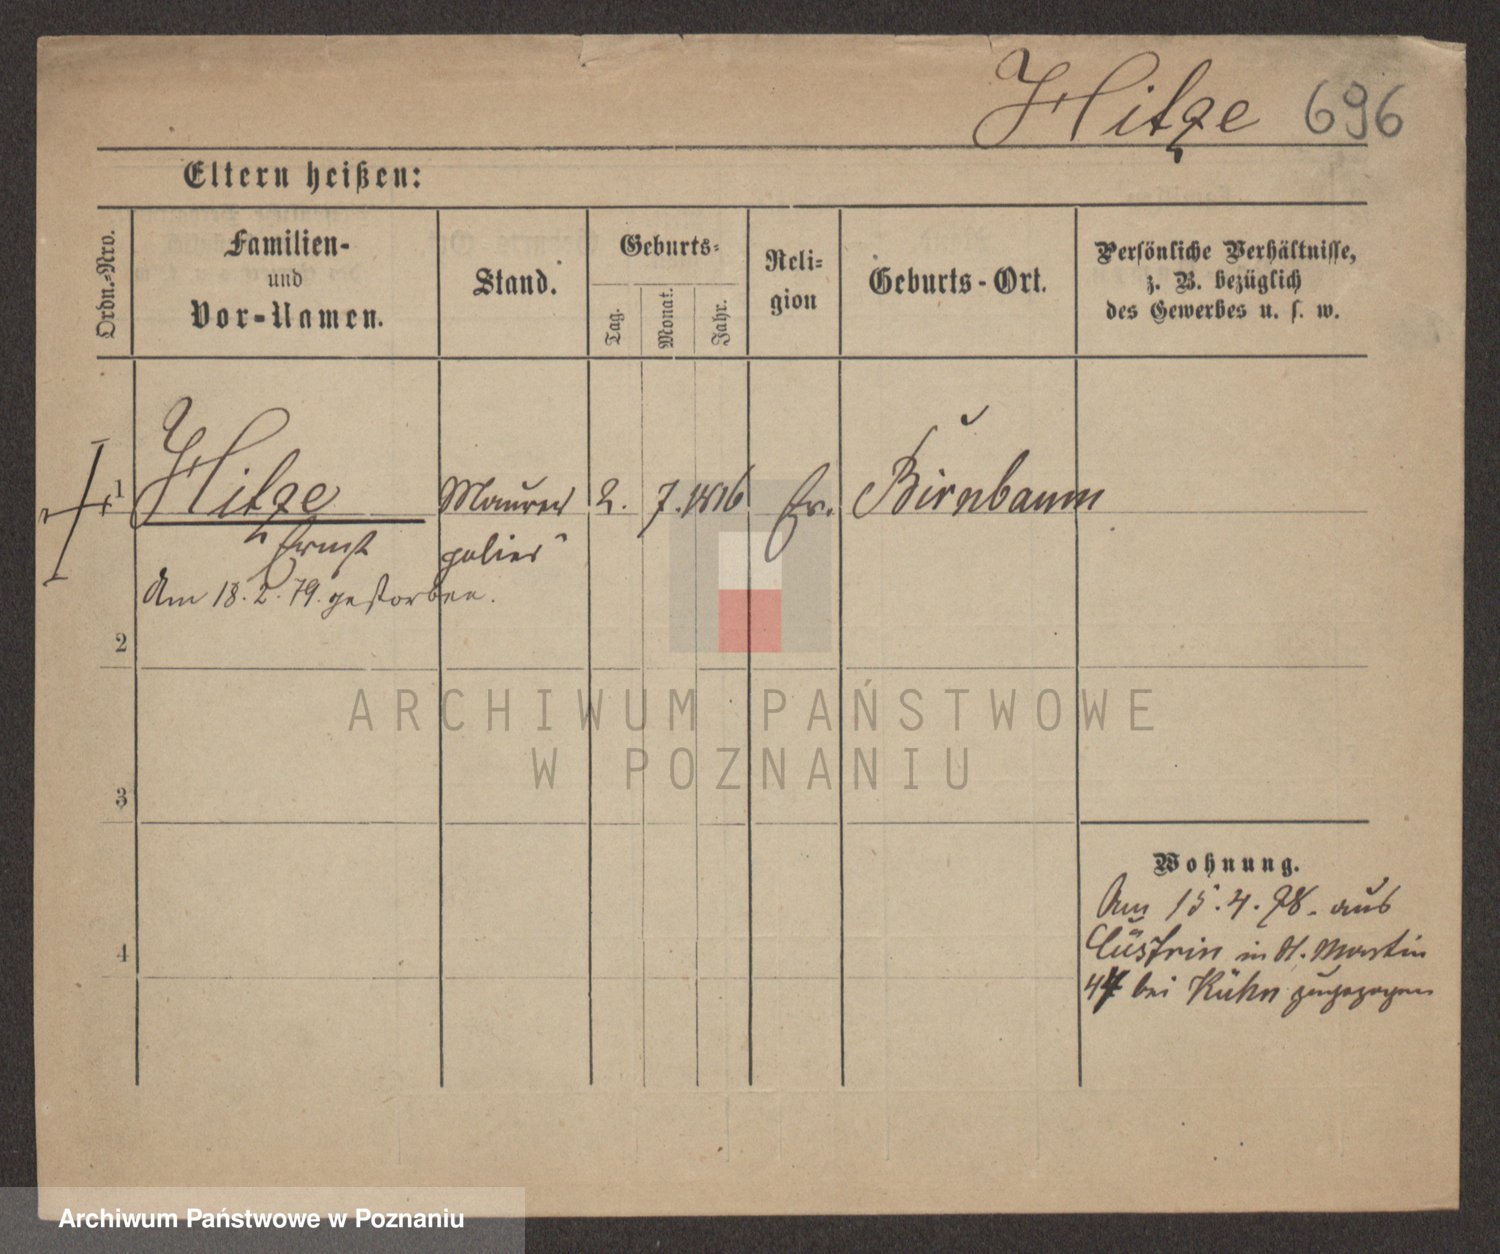 Hitze 696
Eltern heißen:
Ordn.-Nro.
Familien-
und
Vor-Namen.
Stand.
Geburts-
Tag.
Monat.
Jahr.
Reli-
gion
Geburts-Ort.
Persönliche Verhältnisse,
z. B. bezüglich
des Gewerbes u. s. w.
1 Hitze Maurer 2. 7. 1816 Ev. Birnbaum
Ernst polier
Am 18. 2. 79. gestorben.
2
ARCHIWUM PAŃSTWOWE
W POZNANIU
3
Wohnung.
Am 15. 4. 78. aus
Cüstrin in St. Martin
4
bei Kühn zugezogen
Archiwum Państwowe w Poznaniu